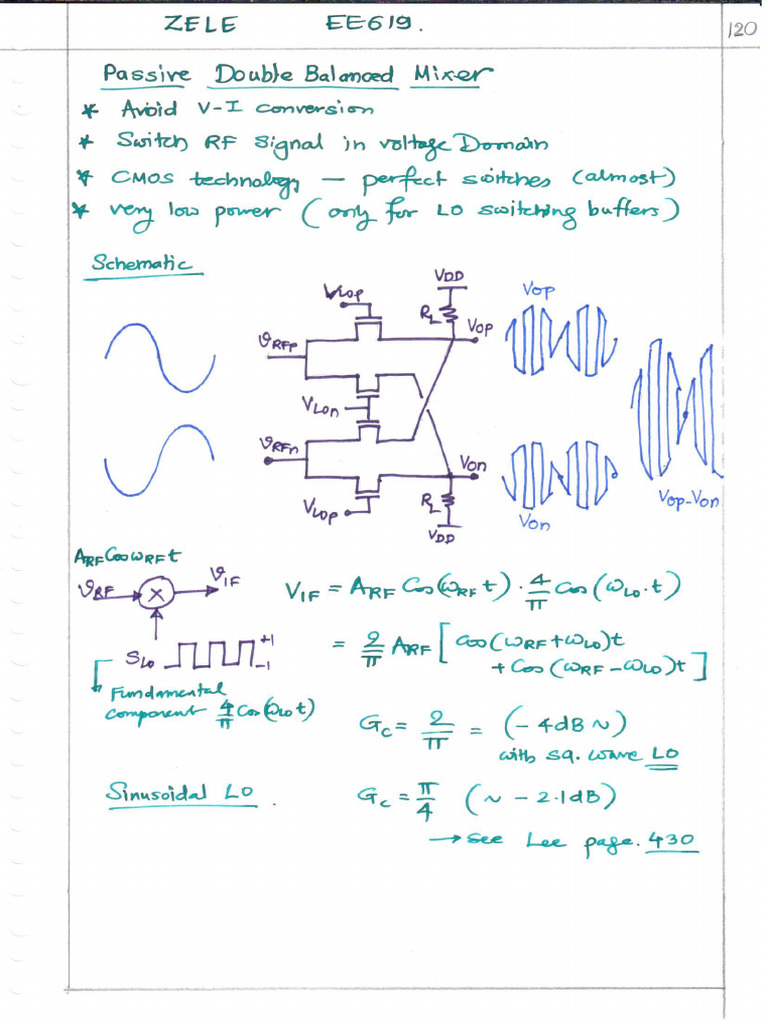 ZELE EE619.
120
Passive Double Balanced Mixer
* Avoid V-I conversion
* Switch RF signal in voltage Domain
* CMOS technology — perfect switches (almost)
* very low power (only for LO switching buffers)
Schematic
VLop
VDD
RL
Vop
Vop
VRFp
VLon
VRFn
VLop
Von
RL
VDD
Von
Vop-Von
ARF Cos ωRF t
VRF × VIF
SLO +1 -1
Fundamental
component 4/π Cos(ωLO t)
VIF = ARF Cos(ωRF t) · 4/π Cos(ωLO·t)
= 2/π ARF [ Cos(ωRF+ωLO)t
+ Cos(ωRF-ωLO)t ]
Gc = 2/π = (-4dB ~)
with sq. wave LO
Sinusoidal LO.
Gc = π/4 (~ -2.1dB)
→ see Lee page. 430